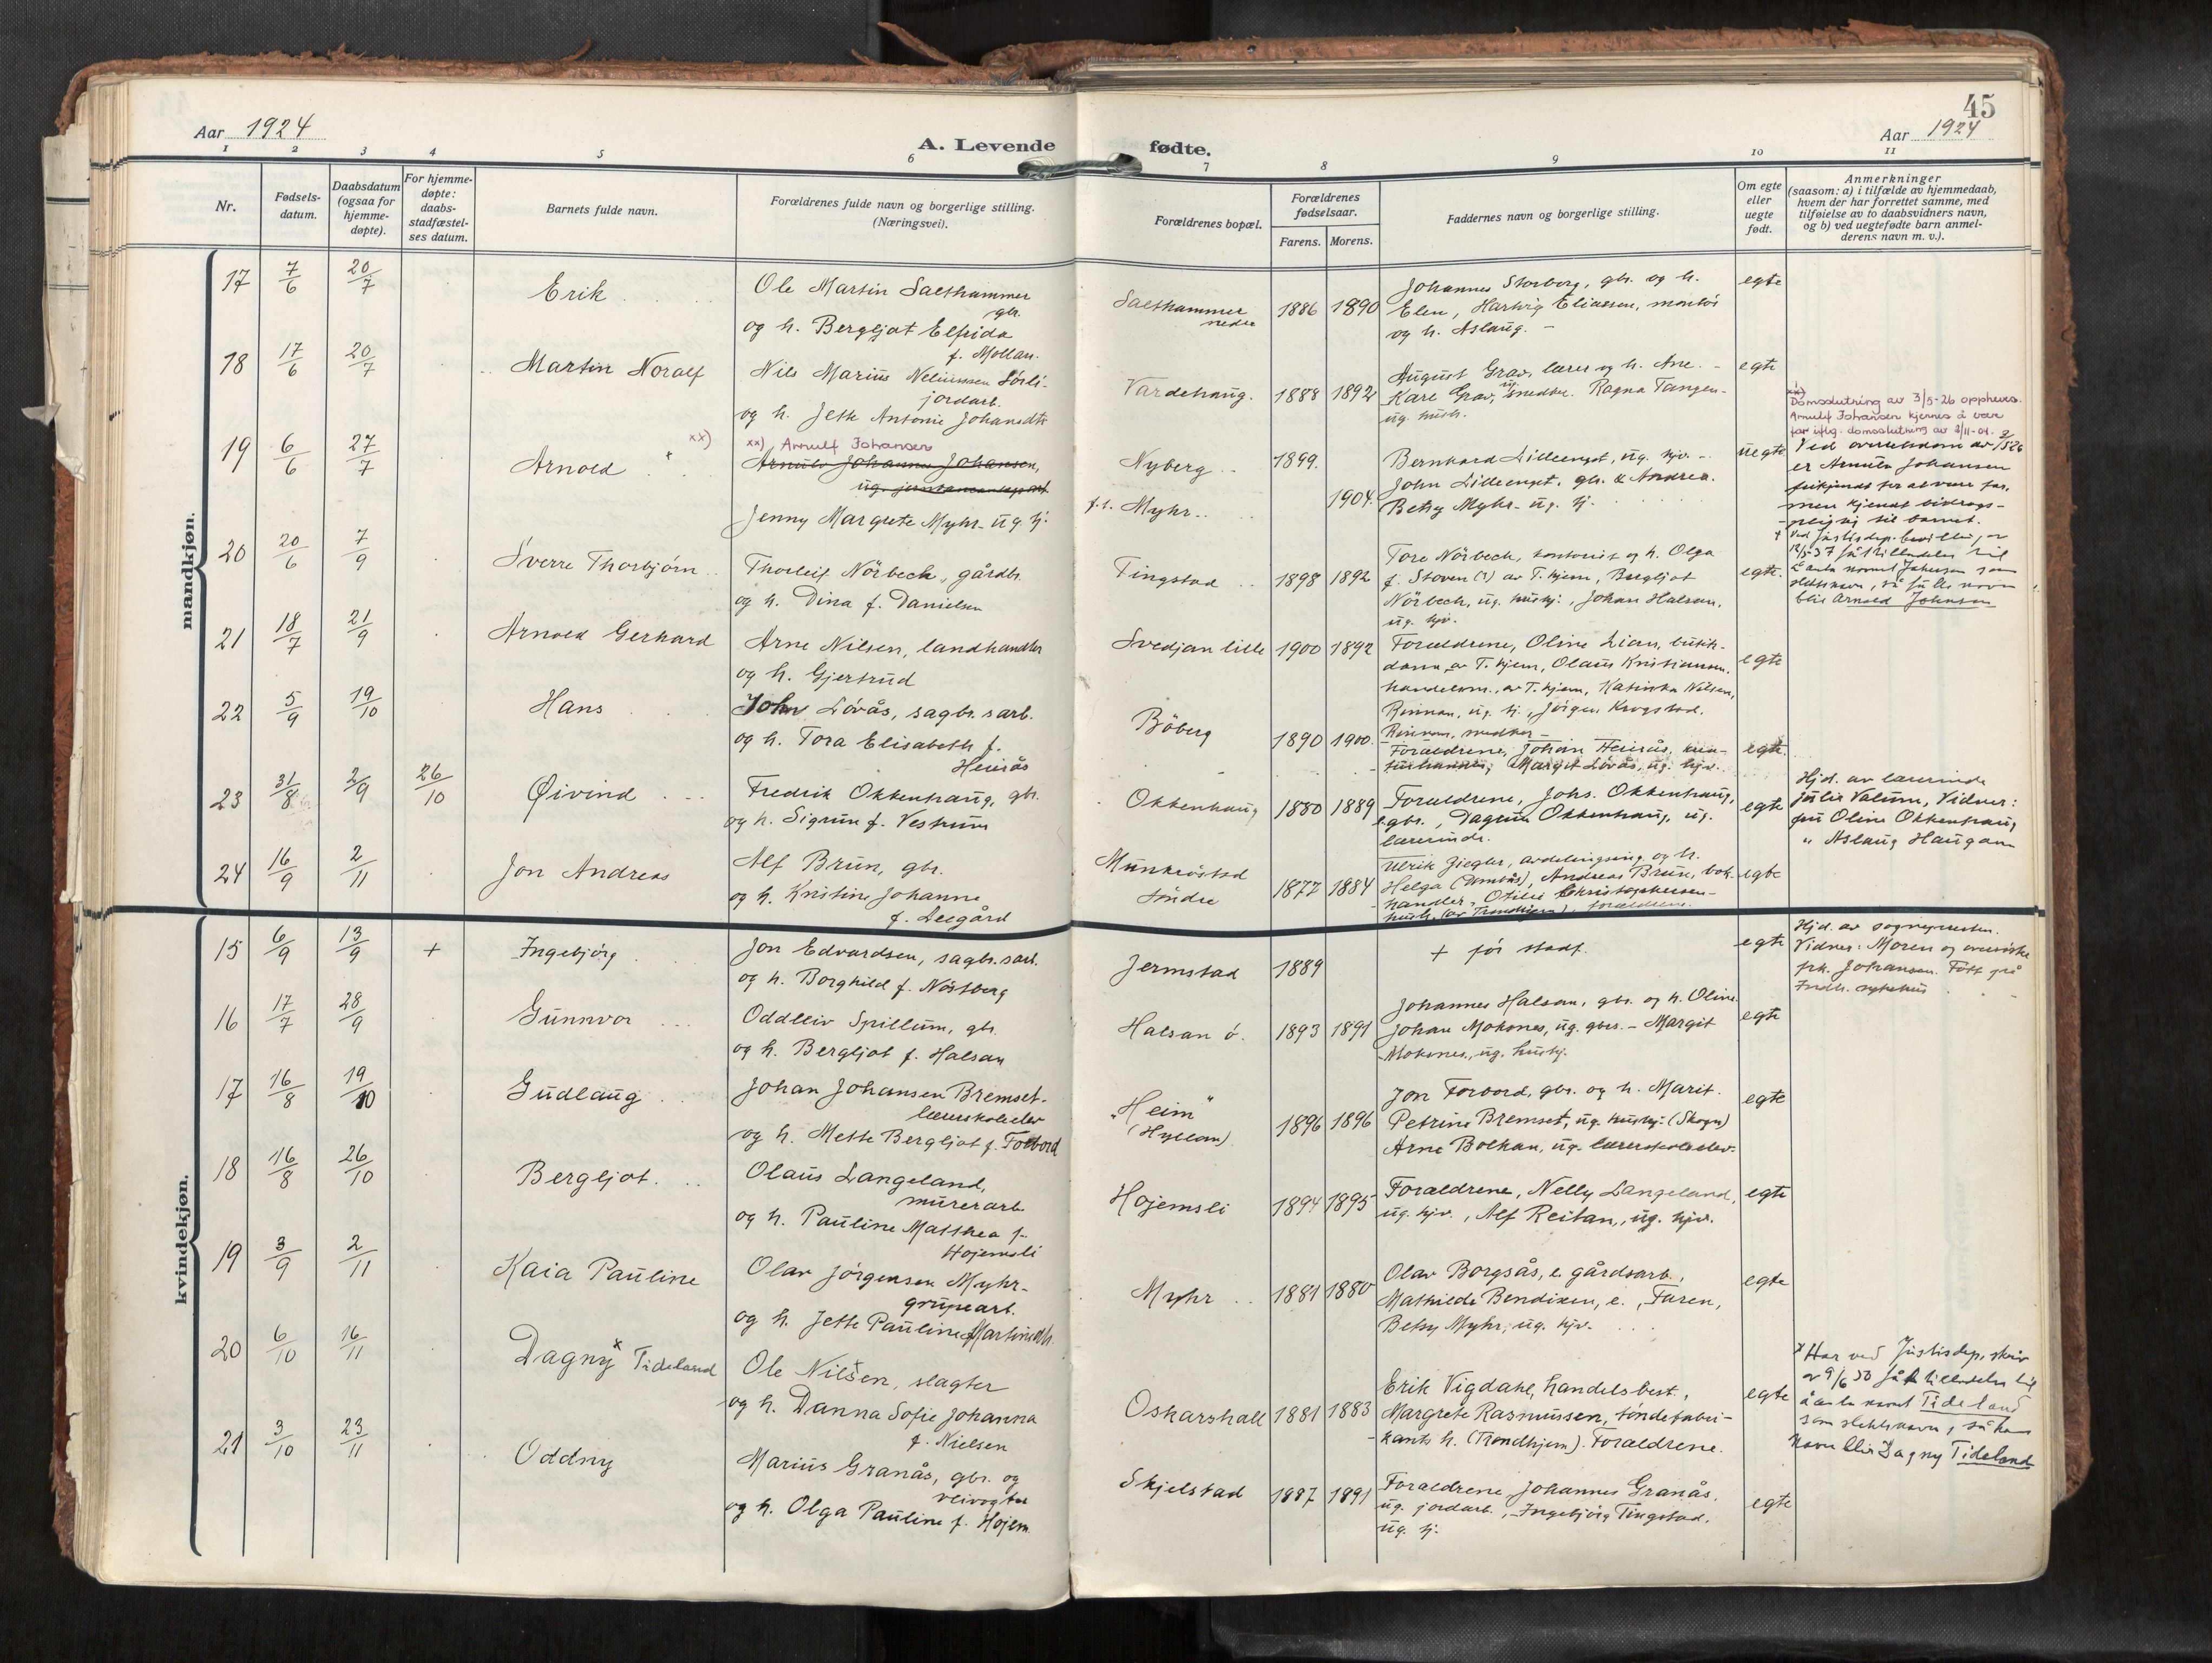 45
Aar 1924
A. Levende
fødte.
Aar 1924
1 2 3 4 5 6 7 8 9 10 11
Nr.
Fødsels-
datum.
Daabsdatum
(ogsaa for
hjemme-
døpte).
For hjemme-
døpte:
daabs-
stadfæstel-
ses datum.
Barnets fulde navn.
Forældrenes fulde navn og borgerlige stilling.
(Næringsvei).
Forældrenes bopæl.
Forældrenes
fødselsaar.
Farens. Morens.
Faddernes navn og borgerlige stilling.
Om egte
eller
uegte
født.
Anmerkninger
(saasom: a) i tilfælde av hjemmedaab,
hvem der har forrettet samme, med
tilføielse av to daabsvidners navn,
og b) ved uegtefødte barn anmel-
derens navn m. v.).
mandkjøn.
17 7/6 20/7 Erik
Ole Martin Salthammer
gbr.
og h. Bergljot Elfrida
f. Mollan.
Salthammer
nedre
1886 1890
Johannes Storborg, gbr. og h.
Elen, Hartvig Eliassen, montør
og h. Aslaug. -
egte
18 17/6 20/7 Martin Noralf
Nils Marius Neliussen Sörli-
jordarb.
og h. Jette Antonie Johansdtr
Vardehaug. 1888 1892
August Grav, lærer og h. Ane. -
Karl Grav, ug. snedker. Ragna Tangen-
ug. hush.
egte
19 6/6 27/7 Arnold * xx)
xx) Arnulf Johansen
Arnulv Johannes Johansen,
Jenny Margrete Myhr- ug. tj.
Nyberg
f. t. Myhr
1899. 1904.
Bernhard Lilleenget, ug. hjv. -
John Lilleenget, gbr. & Andrea.
Betsy Myhr- ug. hj.
uegte
xx)
Domsslutning av 3/5-26 opphevs.
Arnulf Johansen kjennes å være
far iflg. domsslutning av 2/11-01.
Ved overrettsdom av 3/5 26
er Arnulv Johansen
frikjendt for at være far,
men kjendt bidrags-
pligtig til barnet.
+ Ved Justisdep. bevilling av
12/5-37 fått tilladelse til
å anta navnet Johnsen som
slektsnavn, så fulle navn
blir Arnold Johnsen
20 20/6 7/9 Sverre Thorbjörn
Thorleif Nörbech, gårdbr.
og h. Dina f. Danielsen
Tingstad 1898 1892
Tore Nörbech, kontorist og h. Olga
f. Stoven (?) av T.hjem, Bergljot
Nörbech, ug. hushj., Johan Halsan,
ug. hjv.
egte.
21 18/7 21/9 Arnold Gerhard
Arne Nilsen, landhandler
og h. Gjertrud
Svedjan lille 1900 1892
Forældrene, Oline Lian, butik-
dame av T.hjem, Olaus Kristiansen,
handelsm., av T.hjem, Katinka Nilsen,
Rinnan, ug. tj., Jörgen Krogstad,
Rinnan, snedker -
egte
22 5/9 19/10 Hans
John Lövås, sagbr.sarb.
og h. Tora Elisabeth f.
Heirås
Böberg 1890 1900.
Forældrene, Johan Heirås,
Margit Lövås, ug. hjv.
egte.
23 31/8 2/9 26/10 Øivind
Fredrik Okkenhaug, gbr.
og h. Sigrun f. Vestrum
Okkenhaug 1880 1889
Forældrene, Johs. Okkenhaug,
e.gbr., Dagrun Okkenhaug, ug.
lærerinde.
egte
Hjd. av lærerinde
Julie Valum, Vidner:
fru Oline Okkenhaug
" Aslaug Haugan
24 16/9 2/11 Jon Andreas
Alf Brun, gbr.
og h. Kristine Johanne
f. Leegård
Munkröstad
söndre
1877 1884
Ulrik Ziegler, avdelingsing. og h.
Helga (Ambås), Andreas Brun, bok-
handler, Otilie Christophersen-
hush. (av Trondhjem). forældrene.
egte
kvindekjøn.
15 6/9 13/9 + Ingebjörg
Jon Edvardsen, sagbr.sarb.
og h. Borghild f. Nöstberg
Jermstad 1889
+ för stadf.
egte
Hjd. av sognepresten.
Vidner: Moren og oversöster
frk. Johansen. Fött på
Indh. sykehus
16 17/7 28/9 Gunnvor
Oddleiv Spillum, gbr.
og h. Bergljot f. Halsan
Halsan ö. 1893 1891
Johannes Halsan, gbr. og h. Oline.
Johan Moksnes, ug. gbrs. - Margit
Moksnes, ug. hushj.
egte
17 16/8 19/10 Gudlaug
Johan Johansen Bremset-
lærerskoleelev
og h. Mette Bergljot f. Forbord
"Heim"
(Hyllan)
1896 1896
Jon Forbord, gbr. og h. Marit.
Petrine Bremset, ug. hushj. (Skogn)
Arne Bolkan, ug. lærerskoleelev-
egte
18 16/8 26/10 Bergljot.
Olaus Langeland,
murerarb.
og h. Pauline Matthea f.
Hojemsli
Hojemsli 1894 1895
Forældrene, Nelly Langeland,
ug. hjv., Alf Reitan, ug. hjv.
egte
19 3/9 2/11 Kaia Pauline
Olav Jörgensen Myhr-
grupearb.
og h. Jette Pauline f. Martinsdtr.
Myhr 1881 1880
Olav Borgsås, e. gårdsarb.,
Mathilde Bendixen, e., Faren,
Betsy Myhr, ug. hjv.
egte
20 6/10 16/11 Dagny* Tideland
Ole Nilsen, slagter
og h. Danna Sofie Johanna
f. Nielsen
Oskarshall 1881 1883
Erik Vigdahl, handelsbest.,
Margrete Rasmussen, töndefabri-
kants h. (Trondhjem). Forældrene.
egte
x Har ved Justisdep. skriv
av 9/6 50 fått tilladelse til
å anta navnet Tideland
som slektsnavn, så hans
navn blir Dagny Tideland
21 3/10 23/11 Oddny
Marius Granås, gbr. og
veivogter
og h. Olga Pauline f. Hojem.
Skjelstad 1887 1891
Forældrene, Johannes Granås,
ug. jordarb., Ingebjörg Tingstad,
ug. tj.
egte